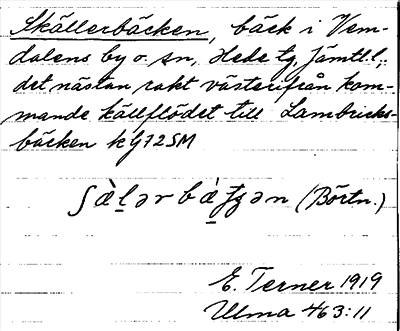 Skällerbäcken, bäck i Vem-
dalens by o. sn, Hede tg, Jämtl. l.;
det nästan rakt västerifrån kom-
mande källflödet till Lambricks-
bäcken k g 72 SM
(Börtn.)
E. Terner 1919
Ulma 463:11